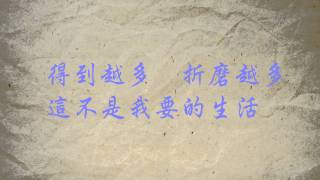 得到越多　折磨越多
這不是我要的生活